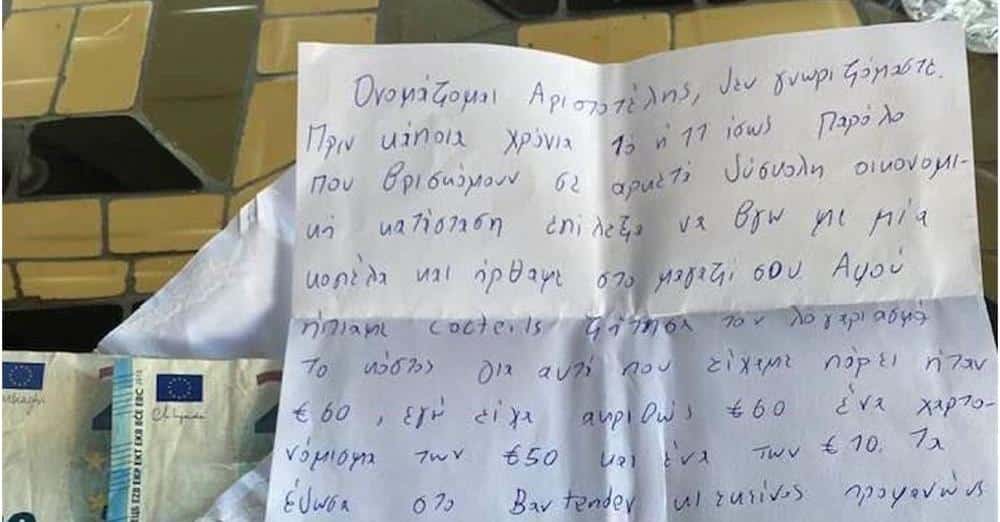 Ονομάζομαι Αριστοτέλης, δεν γνωριζόμαστε.
Πριν κάποια χρόνια 10 ή 11 ίσως παρόλο
που βρισκόμουν σε αρκετά δύσκολη οικονομι-
κή κατάσταση επέλεξα να βγω με μία
κοπέλα και ήρθαμε στο μαγαζί σου. Αφού
ήπιαμε cocteils ζήτησα τον λογαριασμό
το κόστος για αυτά που είχαμε πάρει ήταν
€60, εγώ είχα ακριβώς €60 ένα χαρτο-
νόμισμα των €50 και ένα των €10. Τα
έδωσα στο Bartender κι εκείνος προφανώς
BCE ECB EZB EKP EKT EKB BĊE EBC